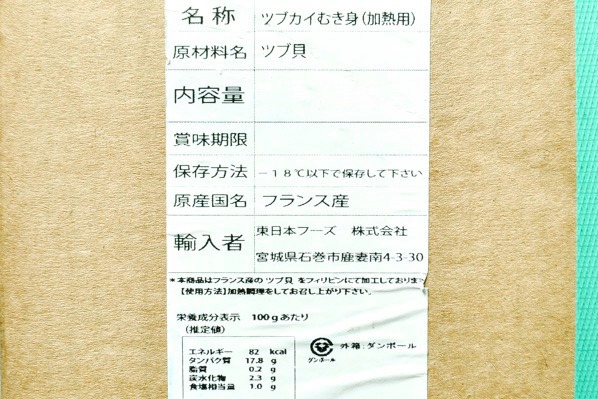 名称 ツブカイむき身(加熱用)
原材料名 ツブ貝
内容量
賞味期限
保存方法 －１８℃以下で保存して下さい
原産国名 フランス産
輸入者 東日本フーズ 株式会社
宮城県石巻市鹿妻南4-3-30
*本商品はフランス産の ツブ貝 をフィリピンにて加工しておりま
【使用方法】加熱調理をしてお召し上がり下さい。
栄養成分表示 100gあたり
(推定値)
エネルギー 82 kcal
タンパク質 17.8 g
脂質 0.2 g
炭水化物 2.3 g
食塩相当量 1.0 g
外箱:ダンボール
ダンボール